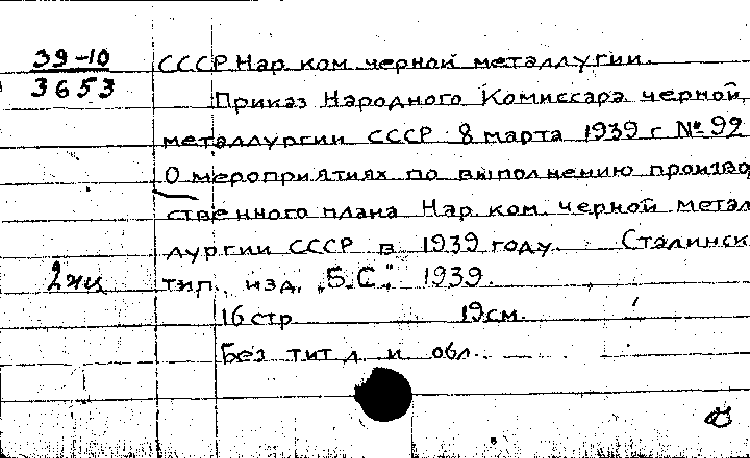 39-10
3653
СССР. Нар. ком. черной металлугии.
Приказ Народного Комиссара черной
металлургии СССР 8 марта 1939 г. № 92
О мероприятиях по выполнению произво
ственного плана Нар. ком. черной метал
лургии СССР в 1939 году. Сталинск
2 экз
тип. изд. „Б.С." 1939.
16 стр 19 см.
Без тит. л. и обл.